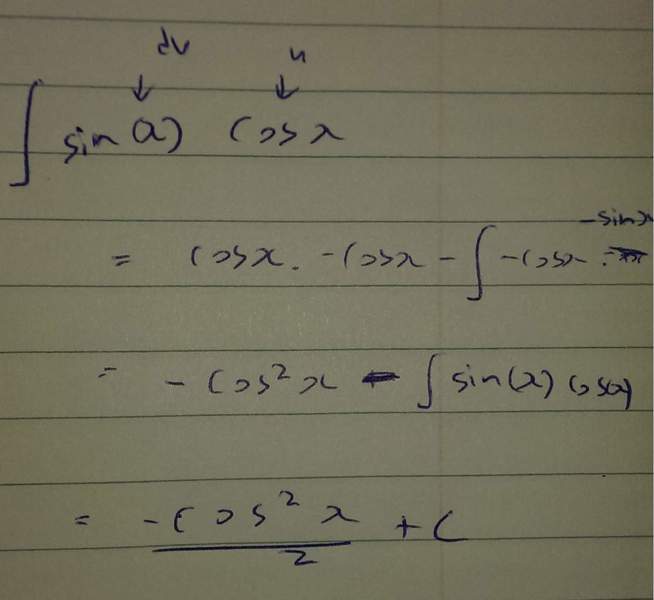 dv u
↓ ↓
∫ sin(x) cosx
= cosx . -cosx - ∫ -cosx . -sinx
= - cos²x - ∫ sin(x) cos(x)
= -cos²x / 2 + C